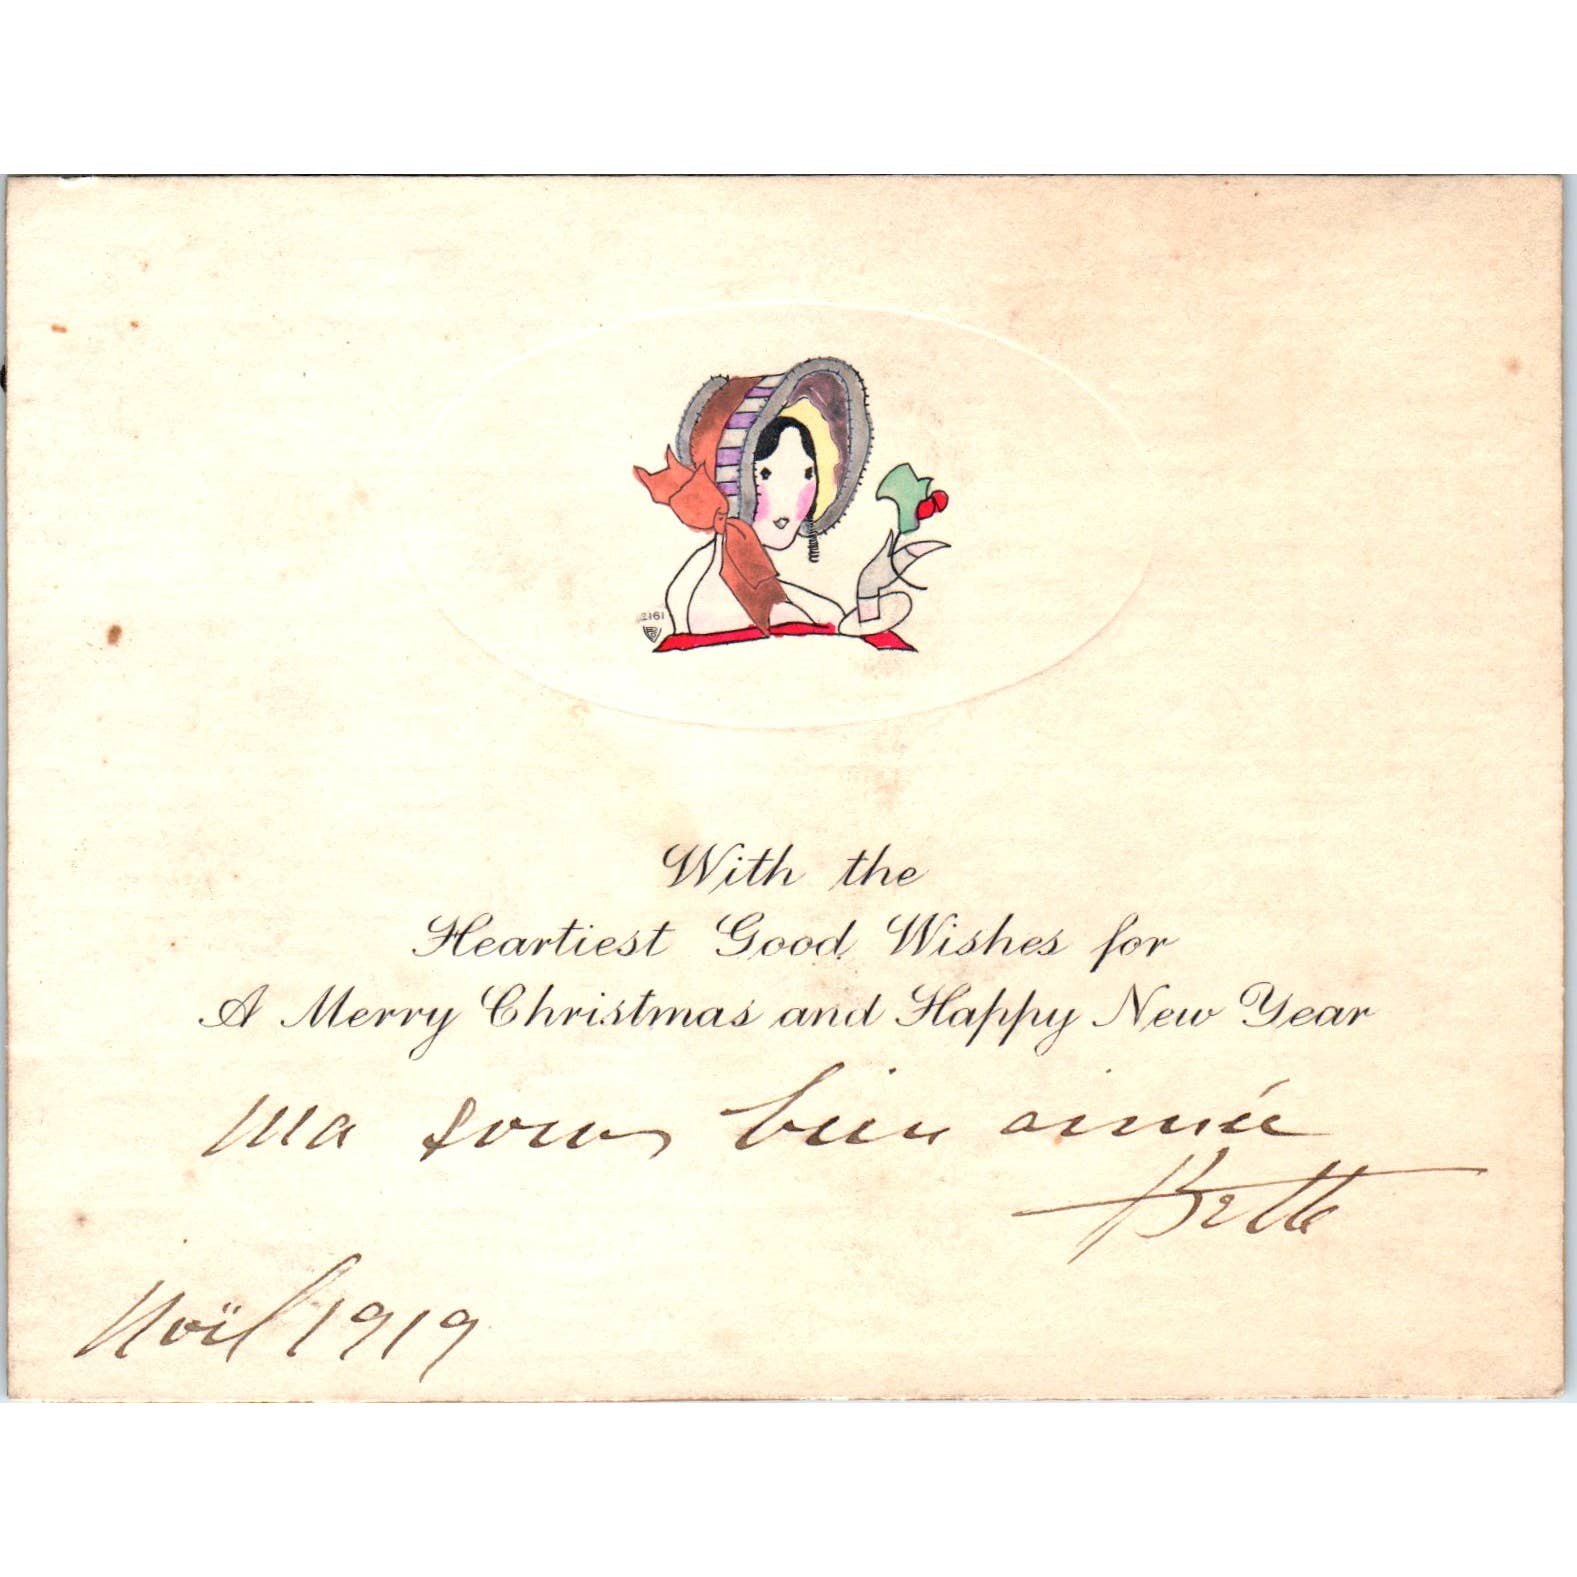 2161
With the
Heartiest Good Wishes for
A Merry Christmas and Happy New Year
Ma soeur bien aimée
Bette
Noël 1919